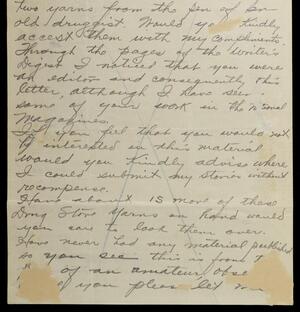 two yarns from the pen of an
old druggist. Would you kindly
accept them with my compliments.
Through the pages of the Writer's
Digest I noticed that you were
an editor and consequently this
letter, although I have seen
some of your work in the
Magazines.
If you feel that you would not
be interested in this material
would you kindly advise where
I could submit my stories without
recompense.
Have about 15 more of these
Drug Store Yarns on hand would
you care to look them over.
Have never had any material published
so you see this is from t
of an amateur.
you please let me